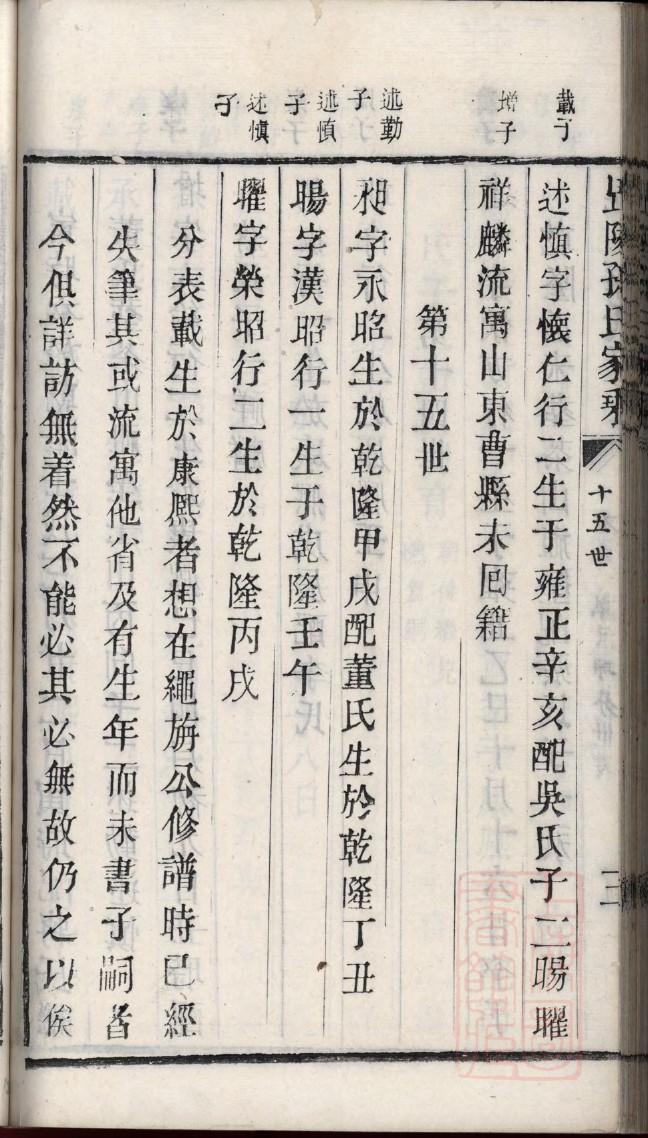 孫氏家乘
十五世
三
載子
述慎字懷仁行二生于雍正辛亥配吳氏子二暘曜
增子
祥麟流寓山東曹縣未回籍
第十五世
述勤子
昶字永昭生於乾隆甲戌配董氏生於乾隆丁丑
述慎子
暘字漢昭行一生于乾隆壬午
述慎子
曜字榮昭行二生於乾隆丙戌
分表載生於康熙者想在繩旃公修譜時已經
失筆其或流寓他省及有生年而未書子嗣者
今俱詳訪無着然不能必其必無故仍之以俟